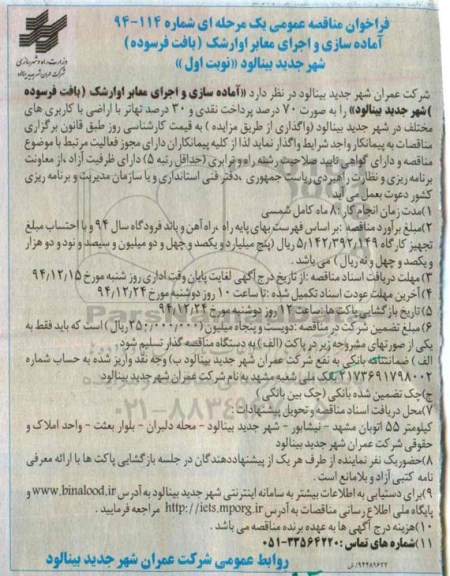 فراخوان مناقصه عمومی یک مرحله ای شماره ۱۱۴-۹۴
آماده سازی و اجرای معابر اوارشک (بافت فرسوده)
شهر جدید بینالود «نوبت اول»
وزارت راه و شهرسازی
شرکت عمران شهر جدید بینالود
شرکت عمران شهر جدید بینالود در نظر دارد «آماده سازی و اجرای معابر اوارشک (بافت فرسوده
)شهر جدید بینالود» را به صورت ۷۰ درصد پرداخت نقدی و ۳۰ درصد تهاتر با اراضی با کاربری های
مختلف در شهر جدید بینالود (واگذاری از طریق مزایده ) به قیمت کارشناسی روز طبق قانون برگزاری
مناقصات به پیمانکار واجد شرایط واگذار نماید لذا از کلیه پیمانکاران دارای مجوز فعالیت مرتبط با موضوع
مناقصه و دارای گواهی تایید صلاحیت رشته راه و ترابری (حداقل رتبه ۵) دارای ظرفیت آزاد ،از معاونت
برنامه ریزی و نظارت راهبردی ریاست جمهوری ،دفتر فنی استانداری و یا سازمان مدیریت و برنامه ریزی
کشور دعوت بعمل می آید .
۱)مدت زمان انجام کار :۸ ماه کامل شمسی
۲)مبلغ برآورد مناقصه :بر اساس فهرست بهای پایه راه ،راه آهن و باند فرودگاه سال ۹۴ و با احتساب مبلغ
تجهیز کارگاه ۵/۱۴۲/۳۹۲/۱۴۹ ریال (پنج میلیارد و یکصد و چهل و دو میلیون و سیصد و نود و دو هزار
و یکصد و چهل و نه ریال ) می باشد .
۳) مهلت دریافت اسناد مناقصه :از تاریخ درج آگهی لغایت پایان وقت اداری روز شنبه مورخ ۹۴/۱۲/۱۵
۴)آخرین مهلت عودت اسناد تکمیل شده :تا ساعت ۱۰ روز دوشنبه مورخ ۹۴/۱۲/۲۴
۵)تاریخ بازگشایی پاکت ها :ساعت ۱۱ روز دوشنبه مورخ ۹۴/۱۲/۲۴
۶)مبلغ تضمین شرکت در مناقصه :دویست و پنجاه میلیون (۲۵۰/۰۰۰/۰۰۰ریال) است که باید فقط به
یکی از صورتهای مشروحه زیر در پاکت (الف) به دستگاه مناقصه گذار تسلیم شود.
الف ) ضمانتنامه بانکی به نفع شرکت عمران شهر جدید بینالود ب) وجه نقد واریز شده به حساب شماره
۲۱۷۳۶۹۱۷۹۸۰۰۲ بانک ملی شعبه مشهد به نام شرکت عمران شهر جدید بینالود
ج)چک تضمین شده بانکی (چک بین بانکی )
۷)محل دریافت اسناد مناقصه و تحویل پیشنهادات :
کیلومتر ۵۵ اتوبان مشهد - نیشابور - شهر جدید بینالود - محله دلبران - بلوار بعثت - واحد املاک و
حقوقی شرکت عمران شهر جدید بینالود
۸)حضور یک نفر نماینده از طرف هر یک از پیشنهاددهندگان در جلسه بازگشایی پاکت ها با ارائه معرفی
نامه کتبی آزاد و بلامانع است .
۹)برای دستیابی به اطلاعات بیشتر به سامانه اینترنتی شهر جدید بینالود به آدرس www.binalood.ir و
پایگاه ملی اطلاع رسانی مناقصات به آدرس http://iets.mporg.ir مراجعه فرمایید .
۱۰)هزینه درج آگهی ها به عهده برنده مناقصه می باشد .
۱۱)شماره های تماس :۳۳۵۶۴۲۲۰-۰۵۱
روابط عمومی شرکت عمران شهر جدید بینالود